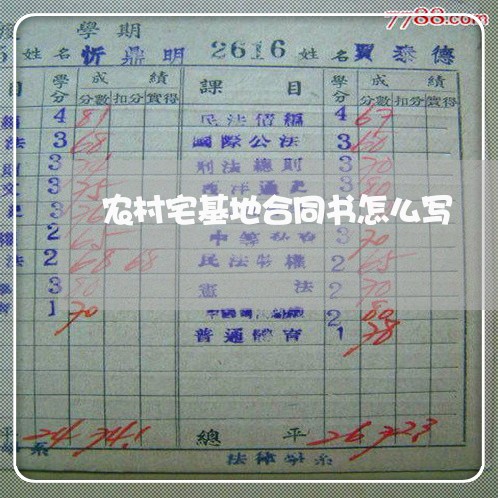 7788.com
學期
姓名 忻鼎明 2616 姓名 賈泰德
目 學分 成績 課目 學分 成績
分數 扣分 實得 分數 扣分 實得
4 81 民法債編 4 67
法 3 68 國際公法 3 60
3 刑法總則 3 70
3 75 西洋通史 3 80
農村宅基地合同书怎么写
2 65 3 70
法 2 68 68 民法物權 2 65
3 80 憲法 2 70
1 70 2 80
普通體育 1 78
平 24 74.1 總平 26 72.3
系 法律學系